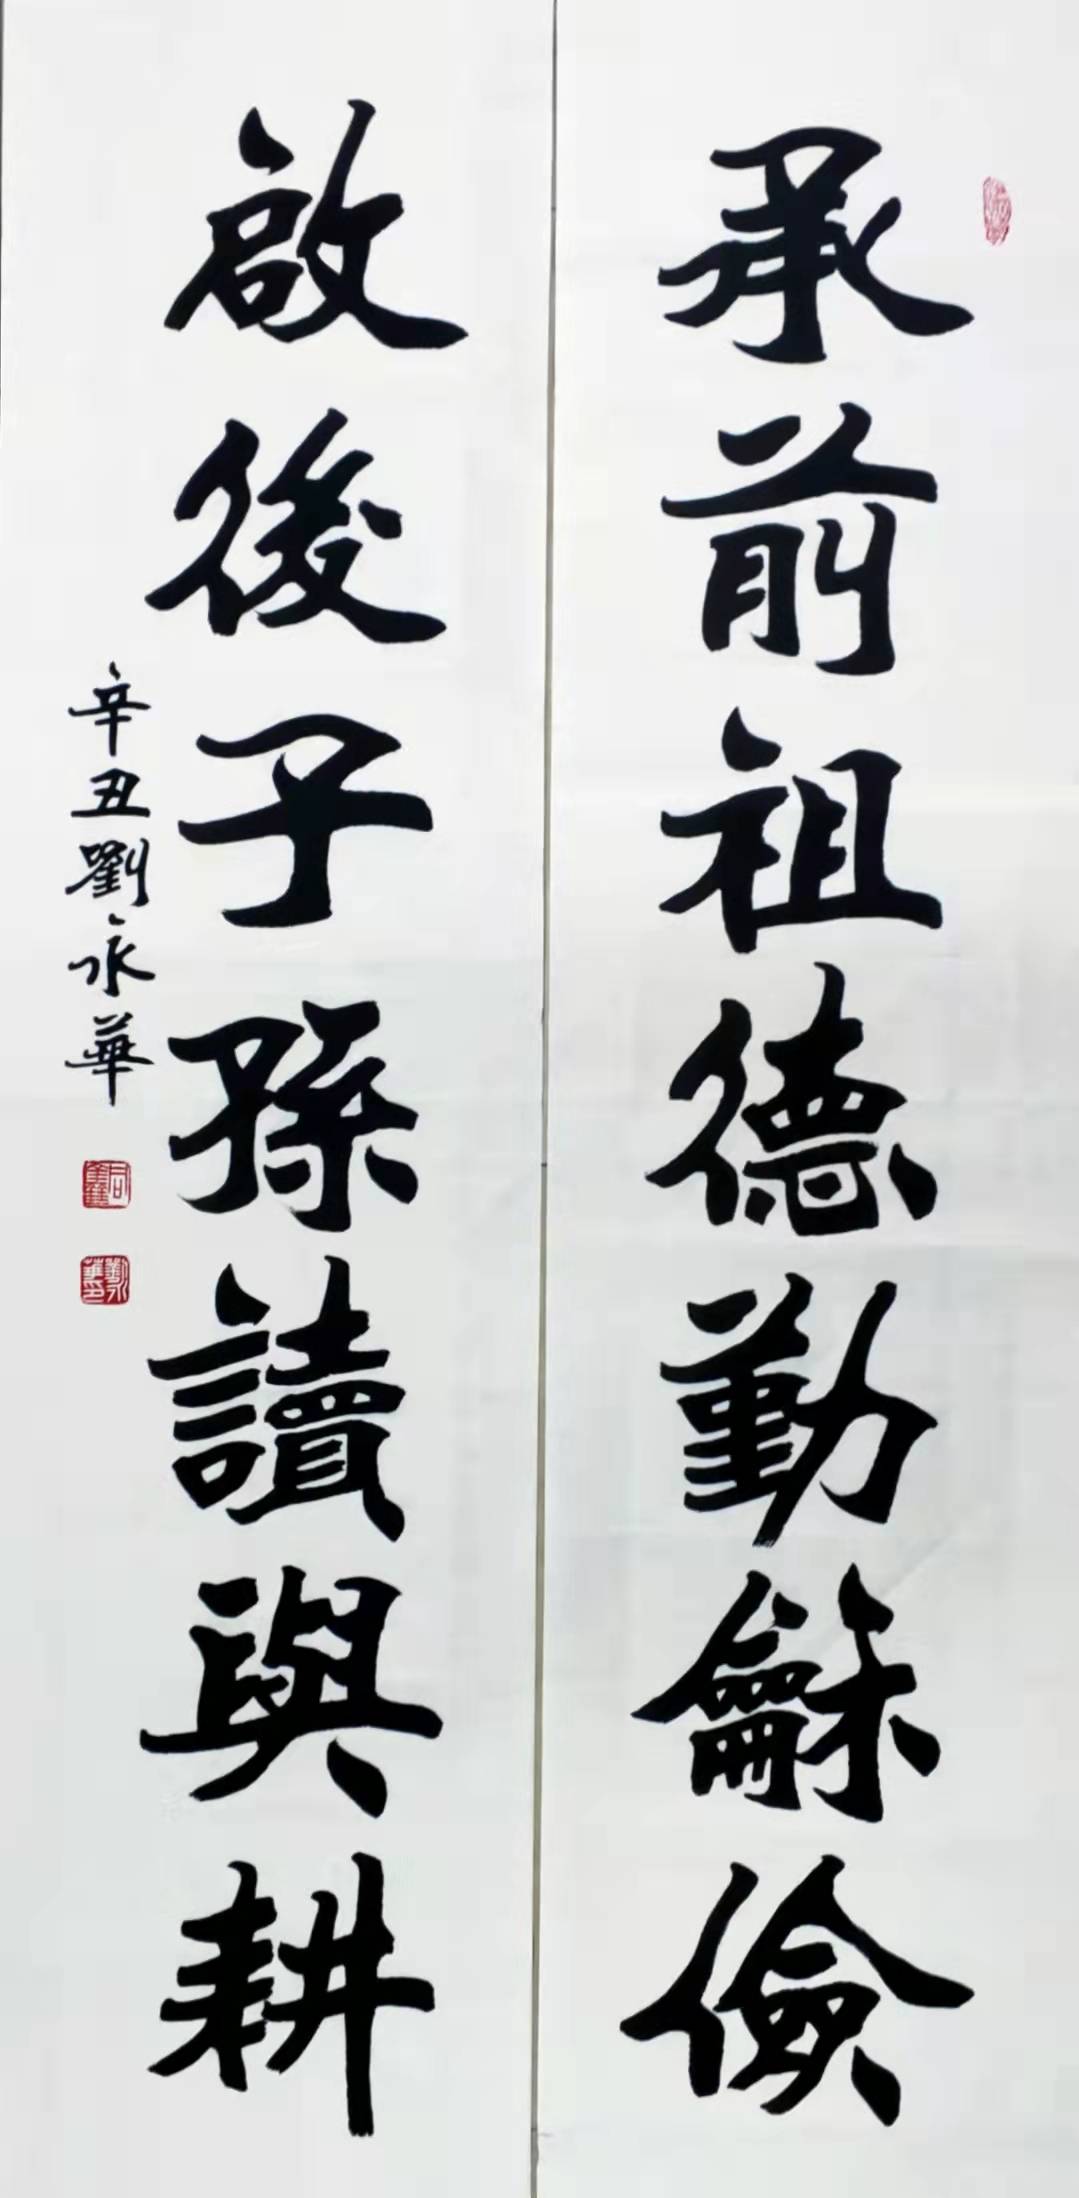 承前祖德勤龢儉
啟後子孫讀與耕
辛丑劉永華